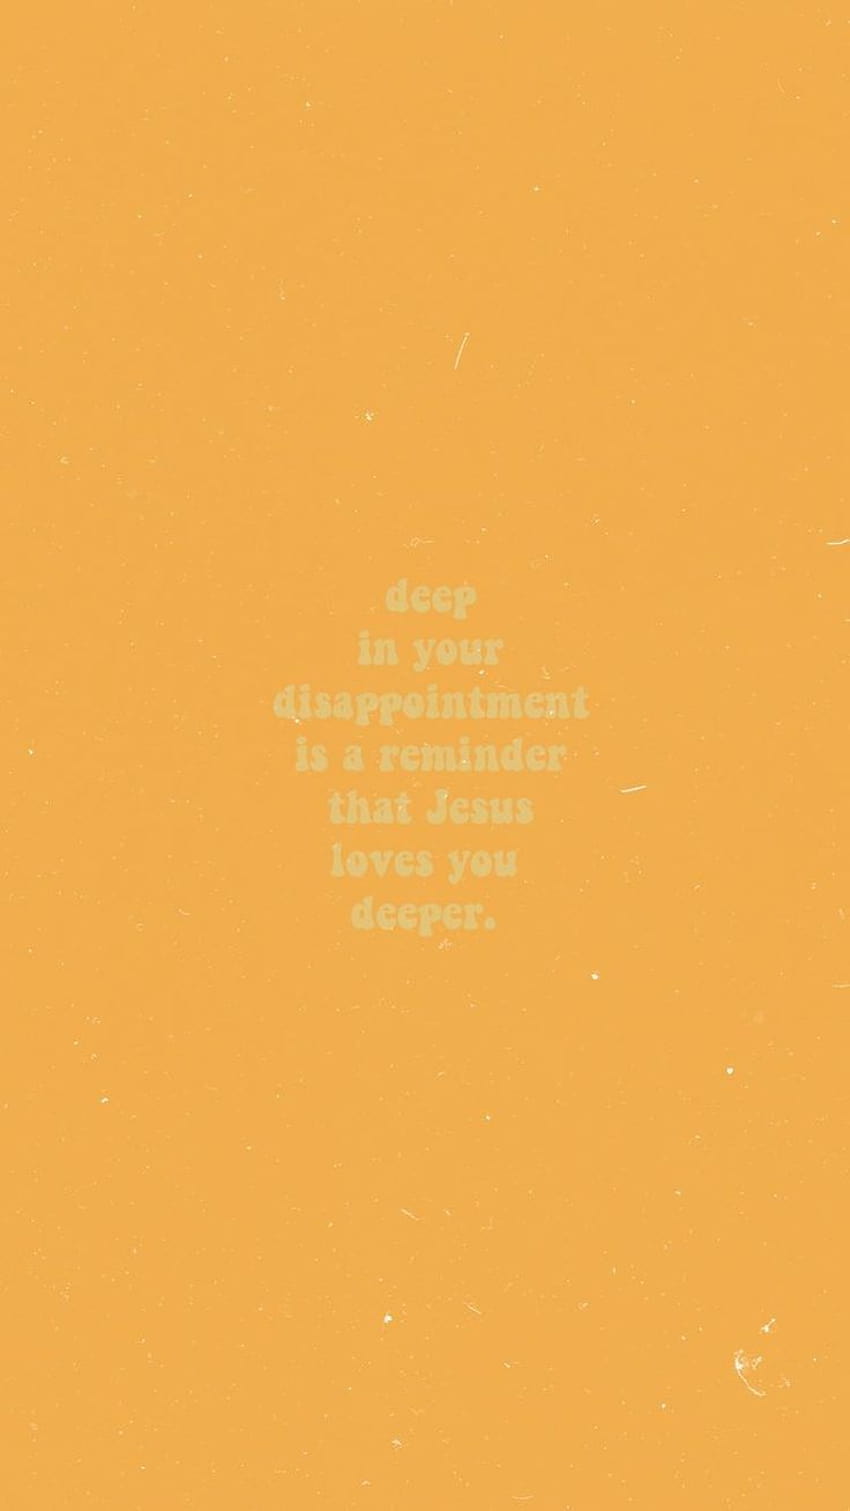 deep
in your
disappointment
is a reminder
that Jesus
loves you
deeper.